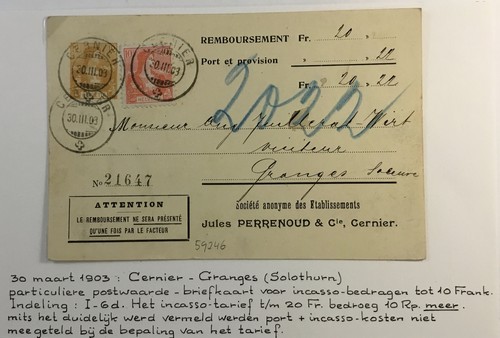 REMBOURSEMENT Fr. 20 "
Port et provision " 22
Fr. 20 22
2022
CERNIER
30.III.03
CERNIER
30.III.03
CERNIER
30.III.03
Monsieur
visiteur
Granges Soleure
No 21647
ATTENTION
LE REMBOURSEMENT NE SERA PRÉSENTÉ
QU'UNE FOIS PAR LE FACTEUR
Société anonyme des Etablissements
Jules PERRENOUD & Cie, Cernier.
59246
30 maart 1903 : Cernier - Granges (Solothurn)
particuliere postwaarde - briefkaart voor incasso-bedragen tot 10 Frank.
Indeling : I-6d. Het incasso-tarief t/m 20 Fr. bedroeg 10 Rp. meer.
mits het duidelijk werd vermeld werden port + incasso-kosten niet
meegeteld bij de bepaling van het tarief.